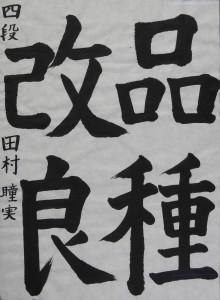 品種
改良
四段 田村瞳実